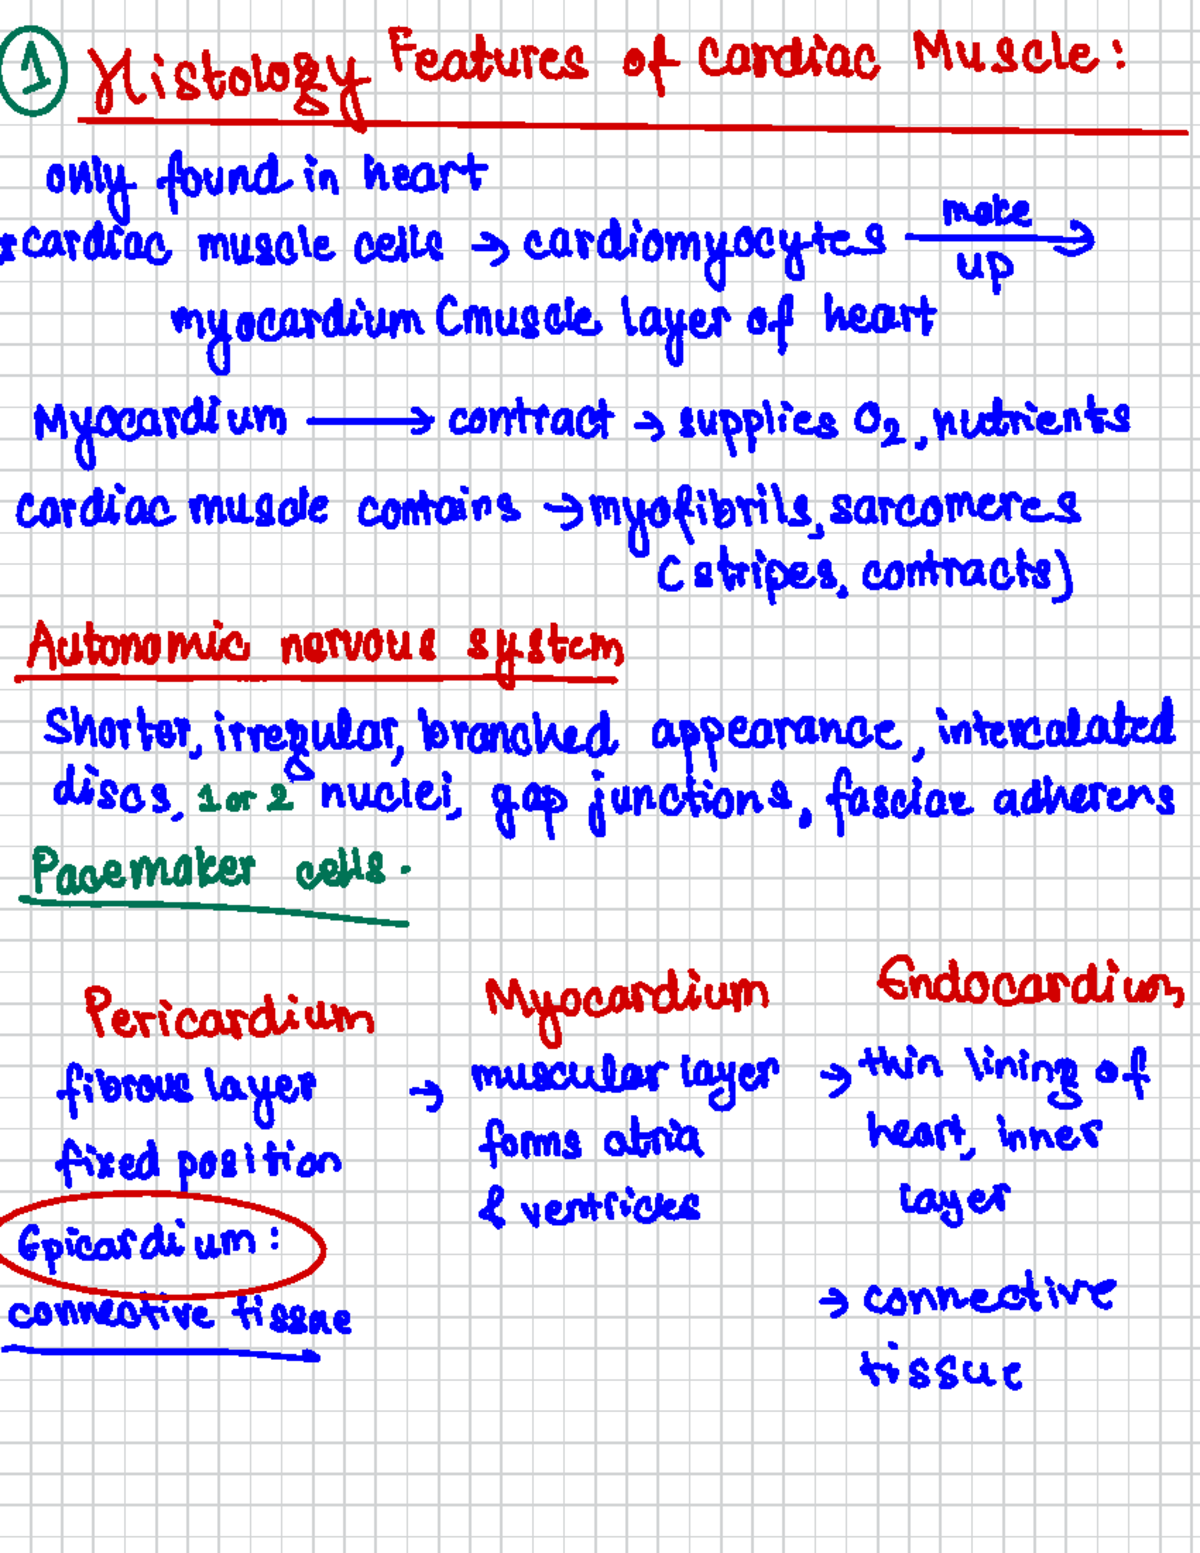 1 Histology Features of Cardiac Muscle:
only found in heart
*cardiac muscle cells → cardiomyocytes make up →
myocardium (muscle layer of heart
Myocardium → contract → supplies O2, nutrients
cardiac muscle contains → myofibrils, sarcomeres
(stripes, contracts)
Autonomic nervous system
Shorter, irregular, branched appearance, intercalated
discs, 1 or 2 nuclei, gap junctions, fasciae adherens
Pacemaker cells.
Pericardium
fibrous layer
fixed position
Epicardium:
connective tissue
Myocardium
→ muscular layer
forms atria
& ventricles
Endocardium
→ thin lining of
heart, inner
layer
→ connective
tissue